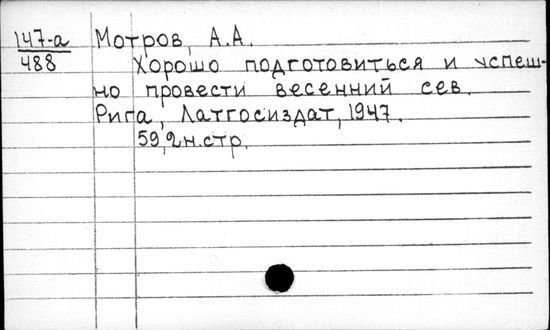 147-а Мотров, А.А.
488 Хорошо подготовиться и успеш-
но провести весенний сев.
Рига, Латгосиздат, 1947.
59,2н.стр.